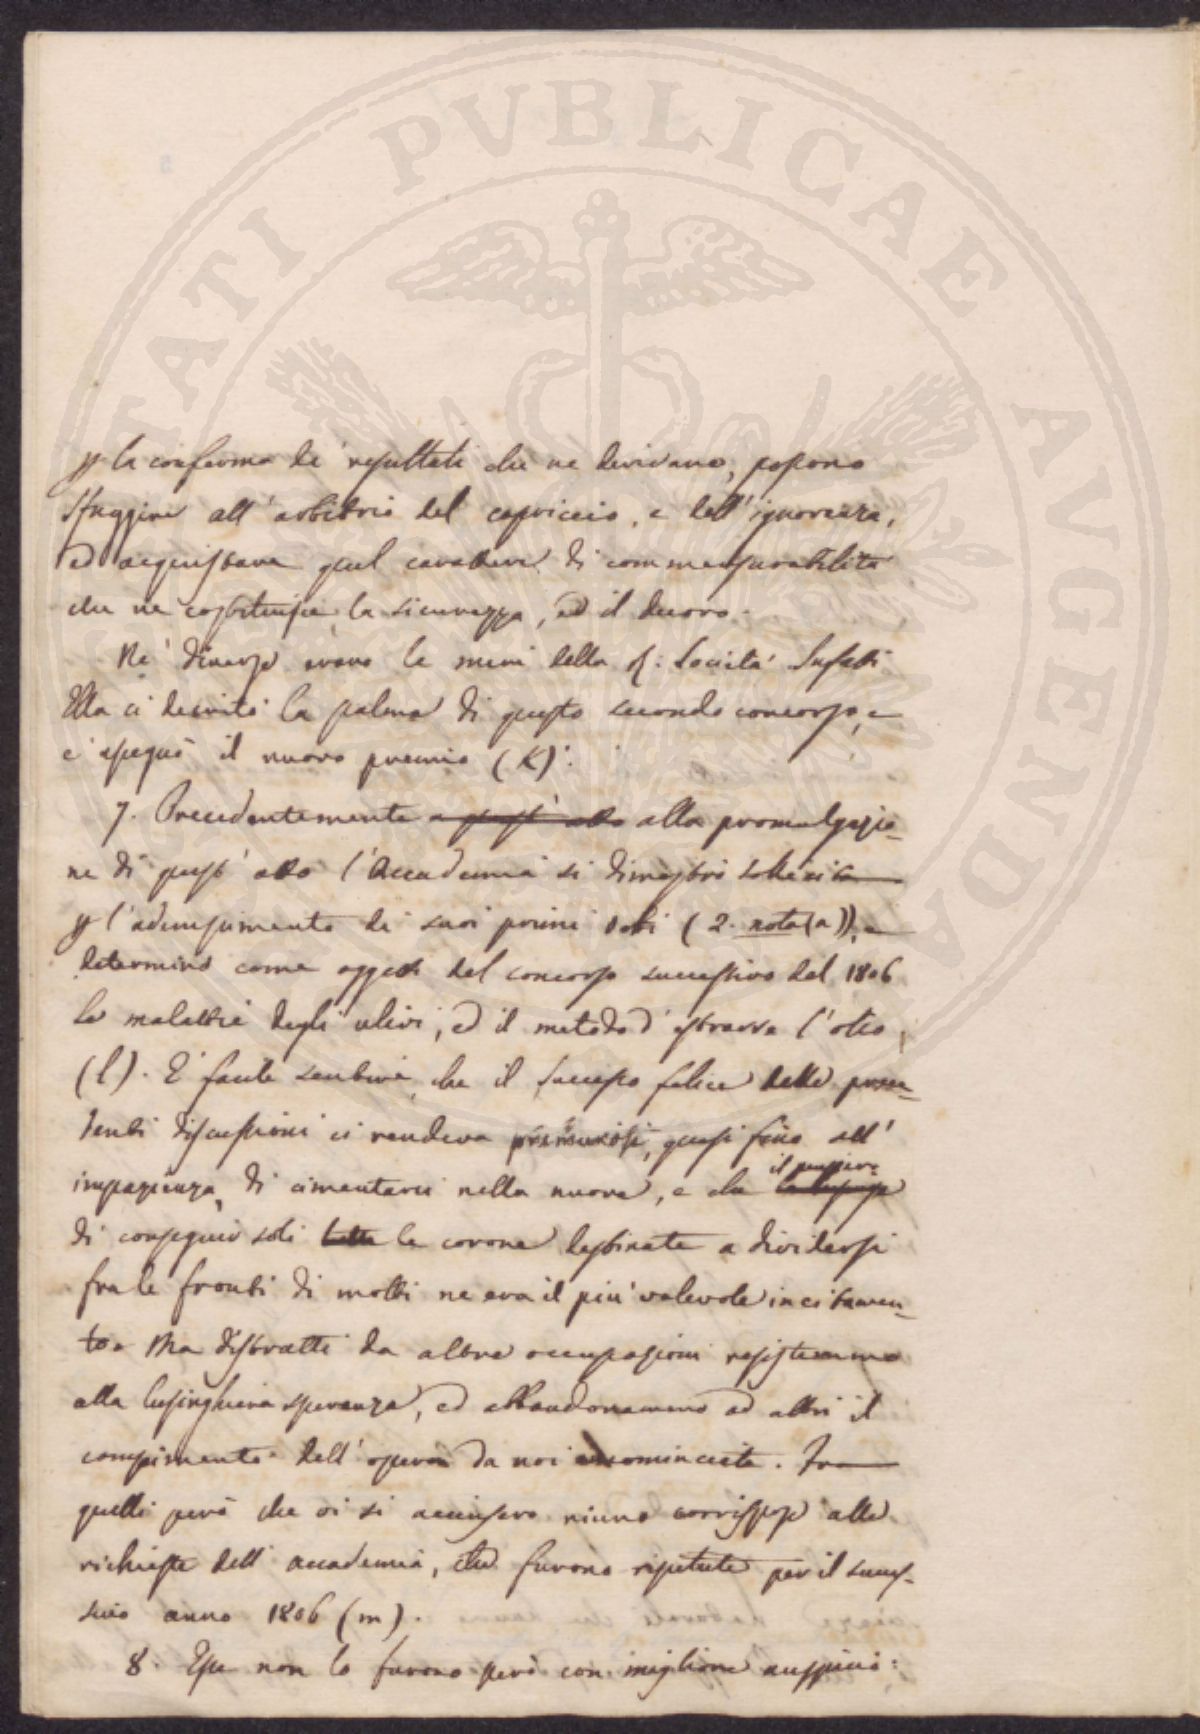 PUBLICAE AUGENDA
p la conferma de' resultati che ne derivano, possono
sfuggire all'arbitrio del capriccio, e dell'ignoranza,
ed acquistare quel carattere di commensurabilità
che ne costituisce la sicurezza, ed il decoro.
Nè diverse erano le mire della R. Società. Infatti
Ella ci decretò la palma di questo secondo concorso, e
ci assegnò il nuovo premio (K).
7. Precedentemente a quest'atto alla promulgazio-
ne di quest'atto l'Accademia si dimostrò sollecita
p l'adempimento dei suoi primi voti (2. nota(a)), e
determinò come oggetti del concorso successivo del 1806
le malattie degli ulivi, ed il metodo d'estrarre l'olio
(l). È facile sentire, che il successo felice delle prece-
denti discussioni ci rendeva premurosi, quasi fino all'
impazienza, di cimentarci nella nuova, e che il pensiero
di conseguir soli tutte le corone destinate a dividersi
fra le fronti di molti ne era il più valevole incitamen-
to. Ma distratti da altre occupazioni resistemmo
alla lusinghiera speranza, ed abbandonammo ad altri il
compimento dell'opera da noi incominciata. Fra
quelli però che vi si accinsero niuno corrispose alle
richieste dell'accademia, che furono ripetute per il succes-
sivo anno 1806 (m).
8. Esse non lo furono però con migliore auspicio: